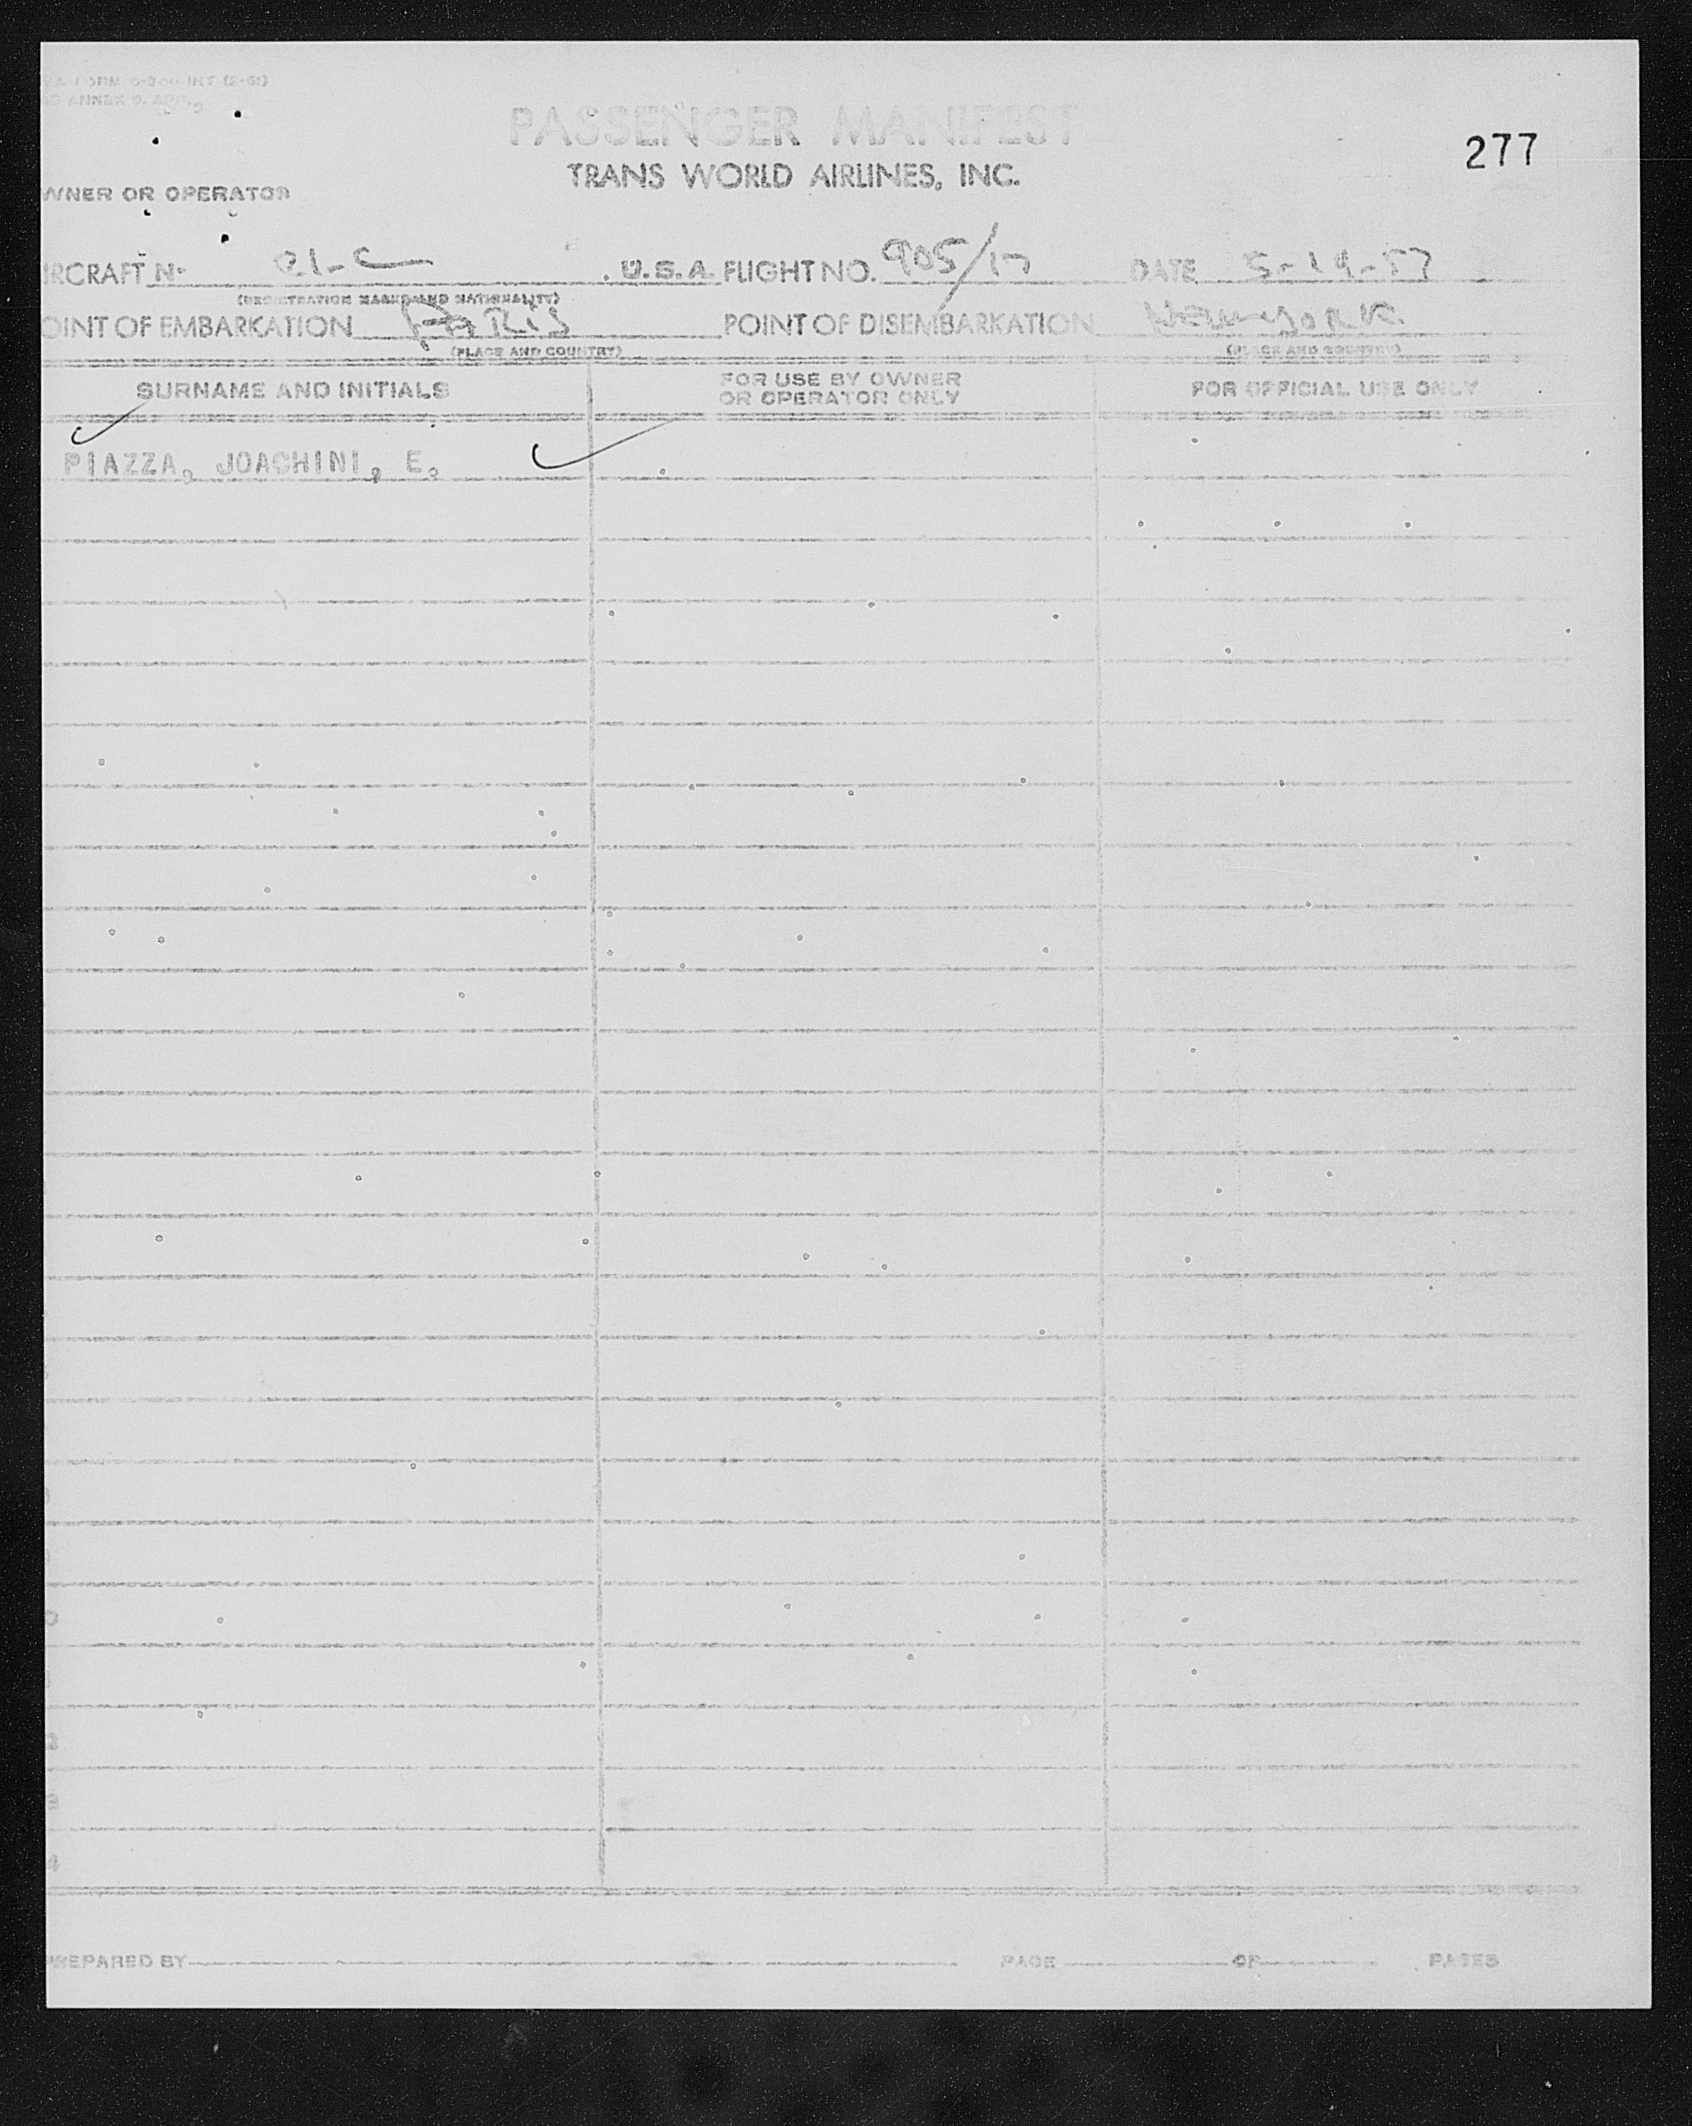 PASSENGER MANIFEST
277
TRANS WORLD AIRLINES, INC.
WNER OR OPERATOR
IRCRAFT No. U.S.A. FLIGHT NO. 905/17 DATE 5-19-57
(REGISTRATION MARKS AND NATIONALITY)
OINT OF EMBARKATION Paris POINT OF DISEMBARKATION New York
(PLACE AND COUNTRY) (PLACE AND COUNTRY)
SURNAME AND INITIALS FOR USE BY OWNER OR OPERATOR ONLY FOR OFFICIAL USE ONLY
PIAZZA, JOACHINI, E.
PREPARED BY PAGE OF PAGES